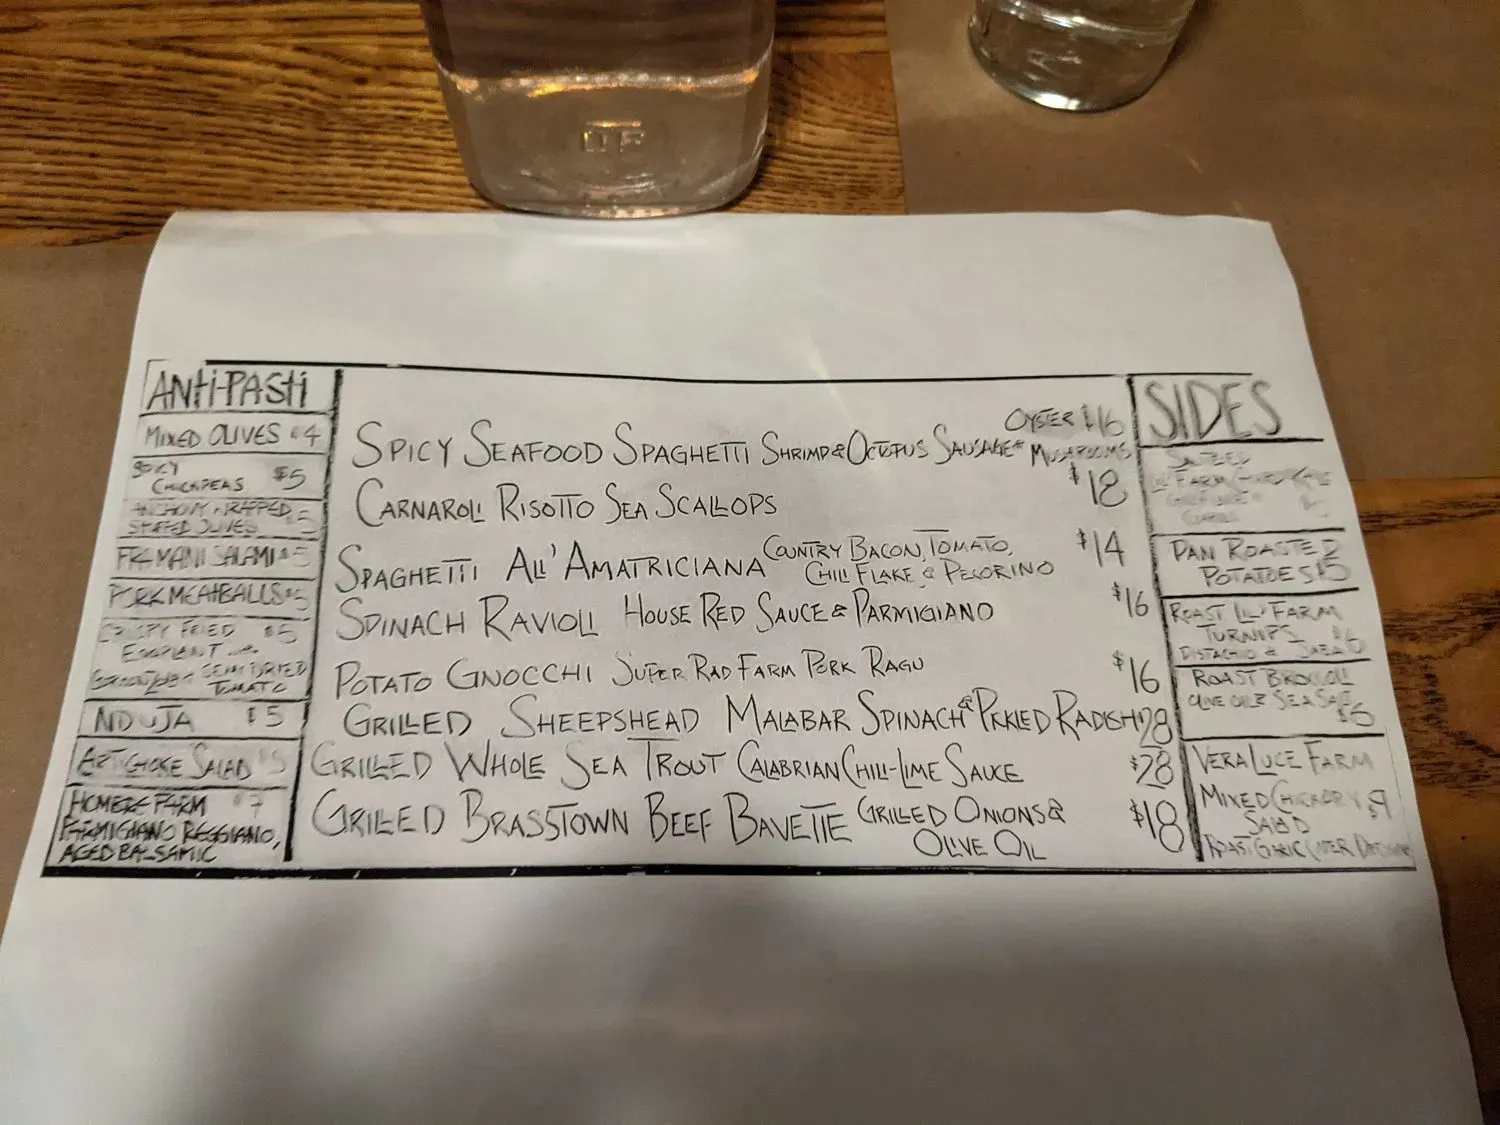 ANTI-PASTI
MIXED OLIVES $4
SPICY
CHICKPEAS $5
ANCHOVY WRAPPED
STUFFED OLIVES $5
FRA'MANI SALAMI $5
PORK MEATBALLS $5
CRISPY FRIED $5
EGGPLANT
SEMI DRIED
TOMATO
NDUJA $5
ARTICHOKE SALAD $5
FARM $7
PARMIGIANO REGGIANO,
AGED BALSAMIC
OYSTER $16
SPICY SEAFOOD SPAGHETTI SHRIMP & OCTOPUS SAUSAGE & MUSHROOMS
CARNAROLI RISOTTO SEA SCALLOPS $18
SPAGHETTI ALL' AMATRICIANA COUNTRY BACON, TOMATO, $14
CHILI FLAKE & PECORINO
SPINACH RAVIOLI HOUSE RED SAUCE & PARMIGIANO $16
POTATO GNOCCHI SUPER RAD FARM PORK RAGU $16
GRILLED SHEEPSHEAD MALABAR SPINACH & PICKLED RADISH $28
GRILLED WHOLE SEA TROUT CALABRIAN CHILI-LIME SAUCE $28
GRILLED BRASSTOWN BEEF BAVETTE GRILLED ONIONS & $18
OLIVE OIL
SIDES
PAN ROASTED
POTATOES $5
ROAST LIL' FARM
TURNIPS
PISTACHIO &
ROAST BROCCOLI
OLIVE OIL & SEA SALT
$6
VERA LUCE FARM
MIXED CHICKORY $9
SALAD
ROAST GARLIC